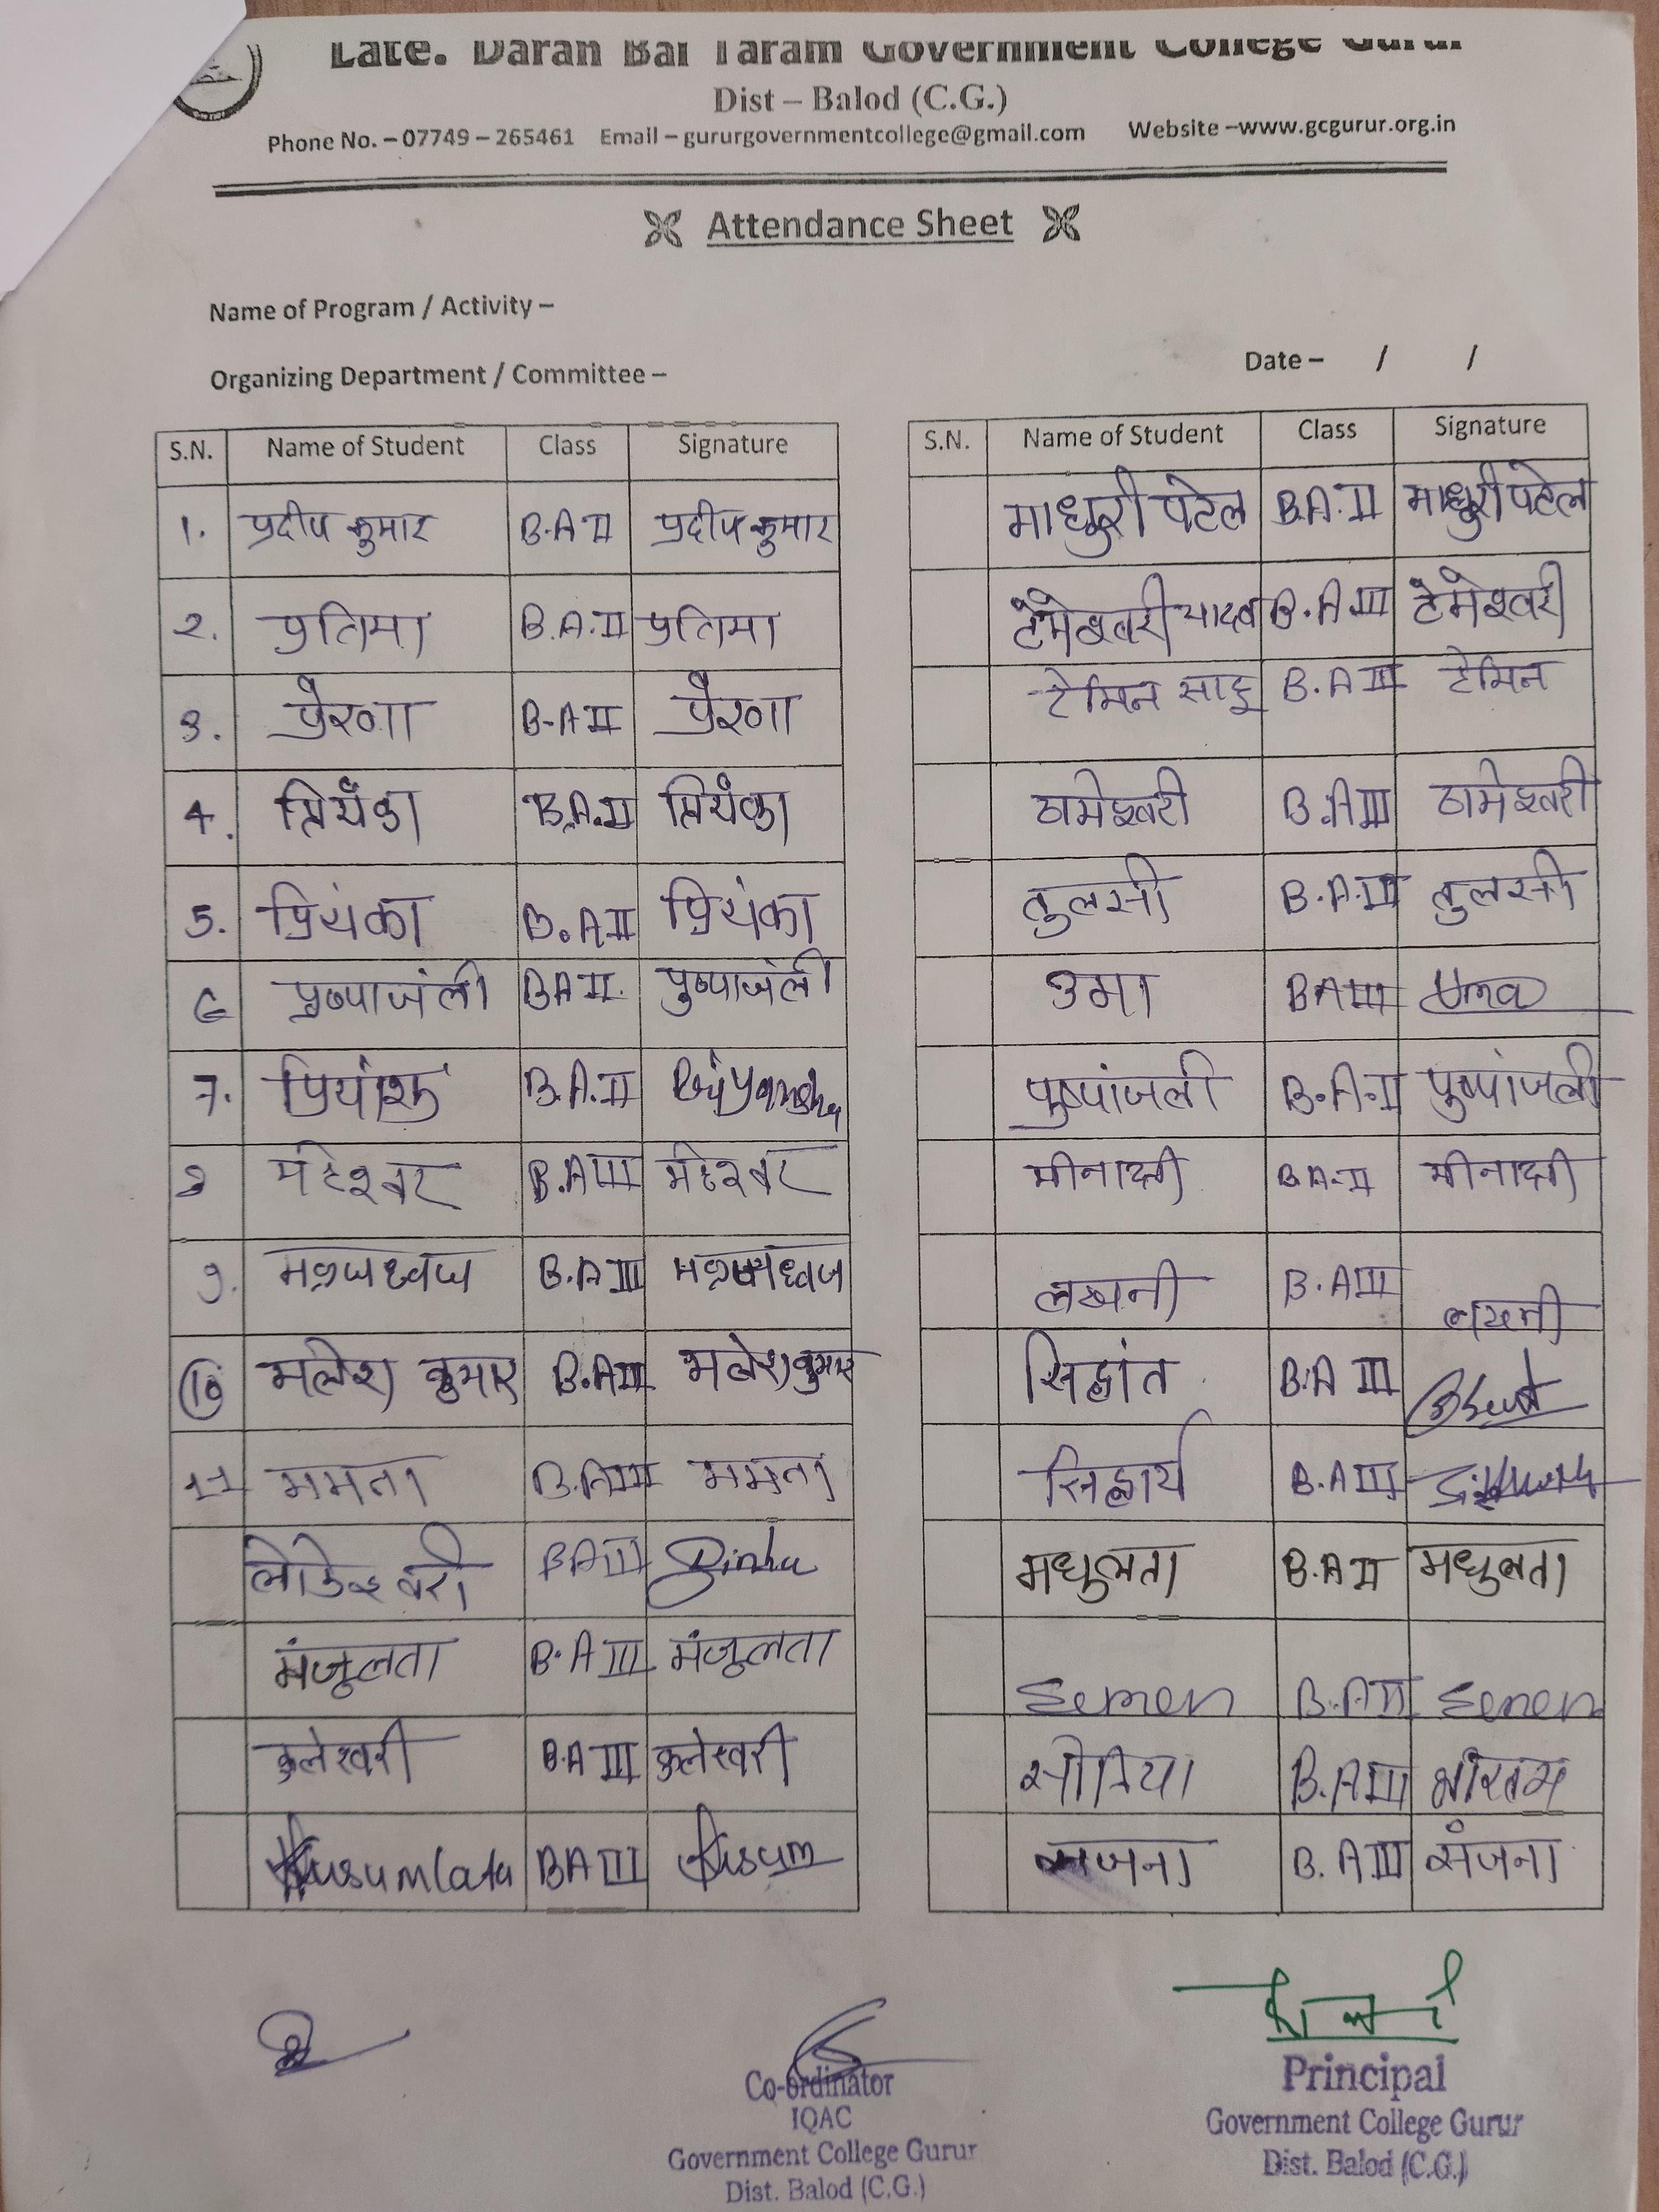 Late. Daran Bai Taram Government College Gurur
Dist – Balod (C.G.)
Phone No. – 07749 – 265461 Email – gururgovernmentcollege@gmail.com Website –www.gcgurur.org.in
Attendance Sheet
Name of Program / Activity –
Date – / /
Organizing Department / Committee –
S.N. Name of Student Class Signature
1. प्रदीप कुमार B.A II प्रदीप कुमार
2. प्रतिमा B.A.II प्रतिमा
3. प्रेरणा B-A II प्रेरणा
4. प्रियंका B.A.II प्रियंका
5. प्रियंका B.A II प्रियंका
6 पुष्पाजंली BA II. पुष्पाजंली
7. प्रियांशु B.A.II Priyanshu
8 B.A III
9. B.A III
10 मलेश कुमार B.A III मलेश कुमार
11 ममता B.A III ममता
BA III
मंजूलता B.A III मंजूलता
कुलेश्वरी B.A III कुलेश्वरी
Kusumlata BA III Kusum
S.N. Name of Student Class Signature
माधुरी पटेल B.A.II माधुरी पटेल
टेमेश्वरी यादव B.A.III टेमेश्वरी
टेमिन साहू B.A III टेमिन
ठामेश्वरी B.A III ठामेश्वरी
तुलसी B.A.III तुलसी
उमा BA III Uma
पुष्पांजली B.A.II पुष्पांजली
मीनाक्षी B.A.II मीनाक्षी
लखनी B.A III लखनी
सिद्धांत B.A III
सिद्धार्थ B.A III
मधुलता B.A II मधुलता
B.A
B.A III
संजना B. A III संजना
Co-ordinator
IQAC
Government College Gurur
Dist. Balod (C.G.)
Principal
Government College Gurur
Dist. Balod (C.G.)